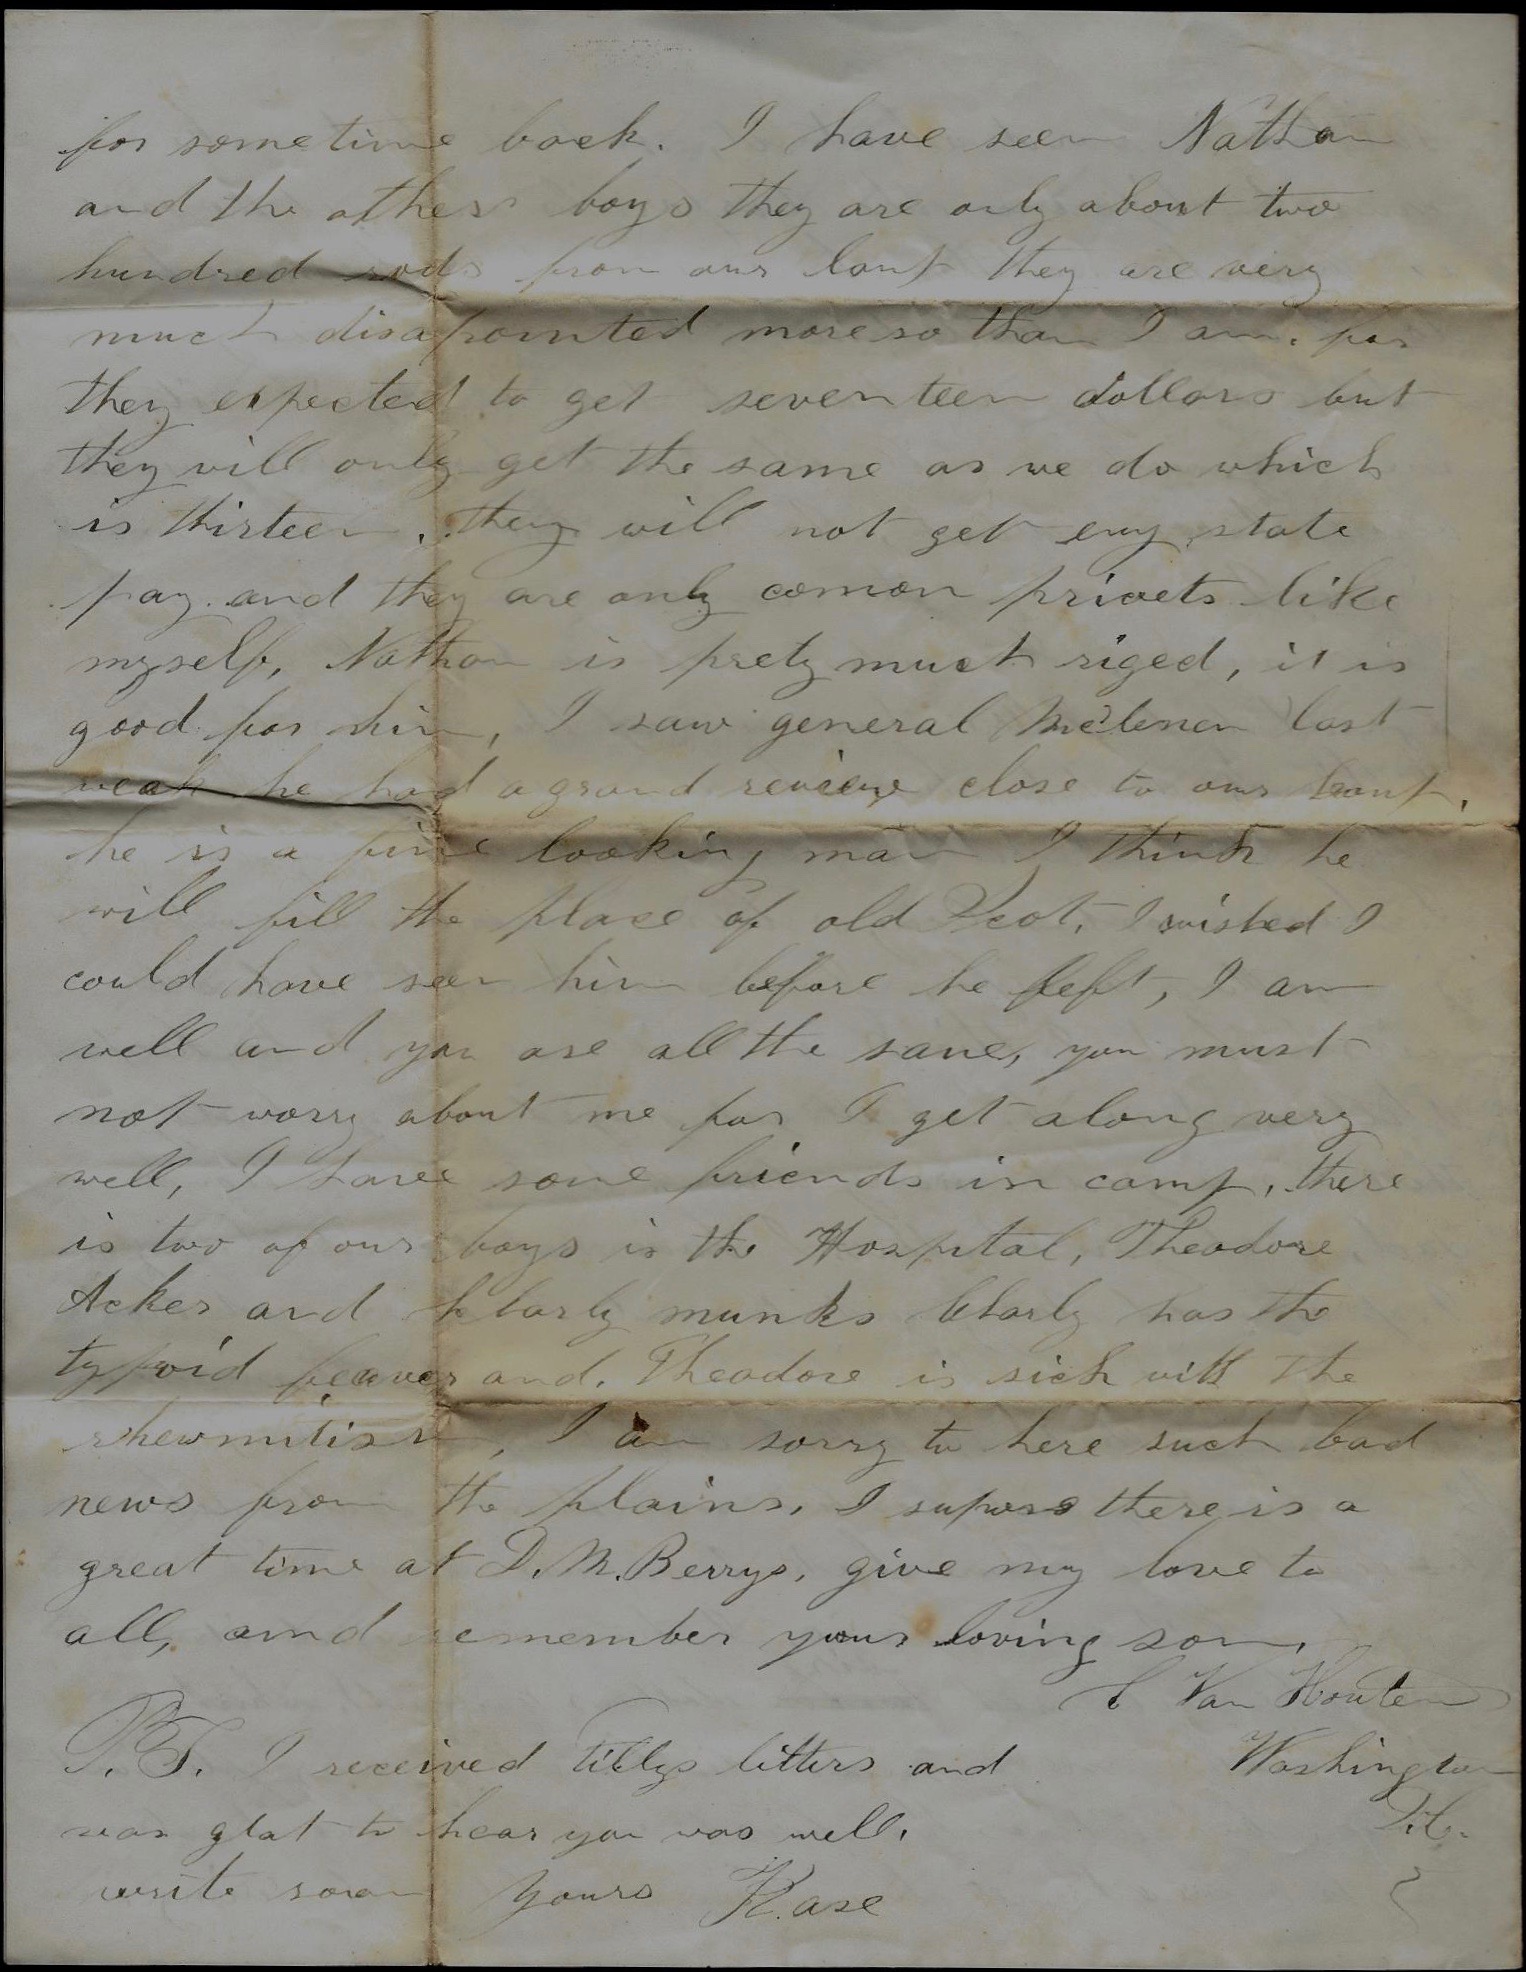 for some time back. I have seen Nathan
and the other boys they are only about two
hundred rods from our camp they are very
much disapointed more so than I am. for
they expected to get seventeen dollars but
they will only get the same as we do which
is thirteen. they will not get eny state
pay. and they are only comon privets like
myself, Nathan is prety much riged, it is
good for him, I saw general Mcclenen last
weak he had a grand review close to our camp.
he is a fine looking man I think he
will fill the place of old Scot. I wished I
could have seen him before he left, I am
well and you are all the same, you must
not worry about me for I get along very
well, I have some friends in camp, there
is two of our boys is the Hospital, Theodore
Acker and Charly munks Charly has the
typoid feaver and. Theodore is sick with the
rhewmitism, I am sorry to here such bad
news from the plains. I supose there is a
great time at D. M. Berrys. give my love to
all, and remember your loving son.
C Van Houten
P. S. I received Tillys litters and Washington
was glat to hear you was well. D.C.
write soon yours Kase